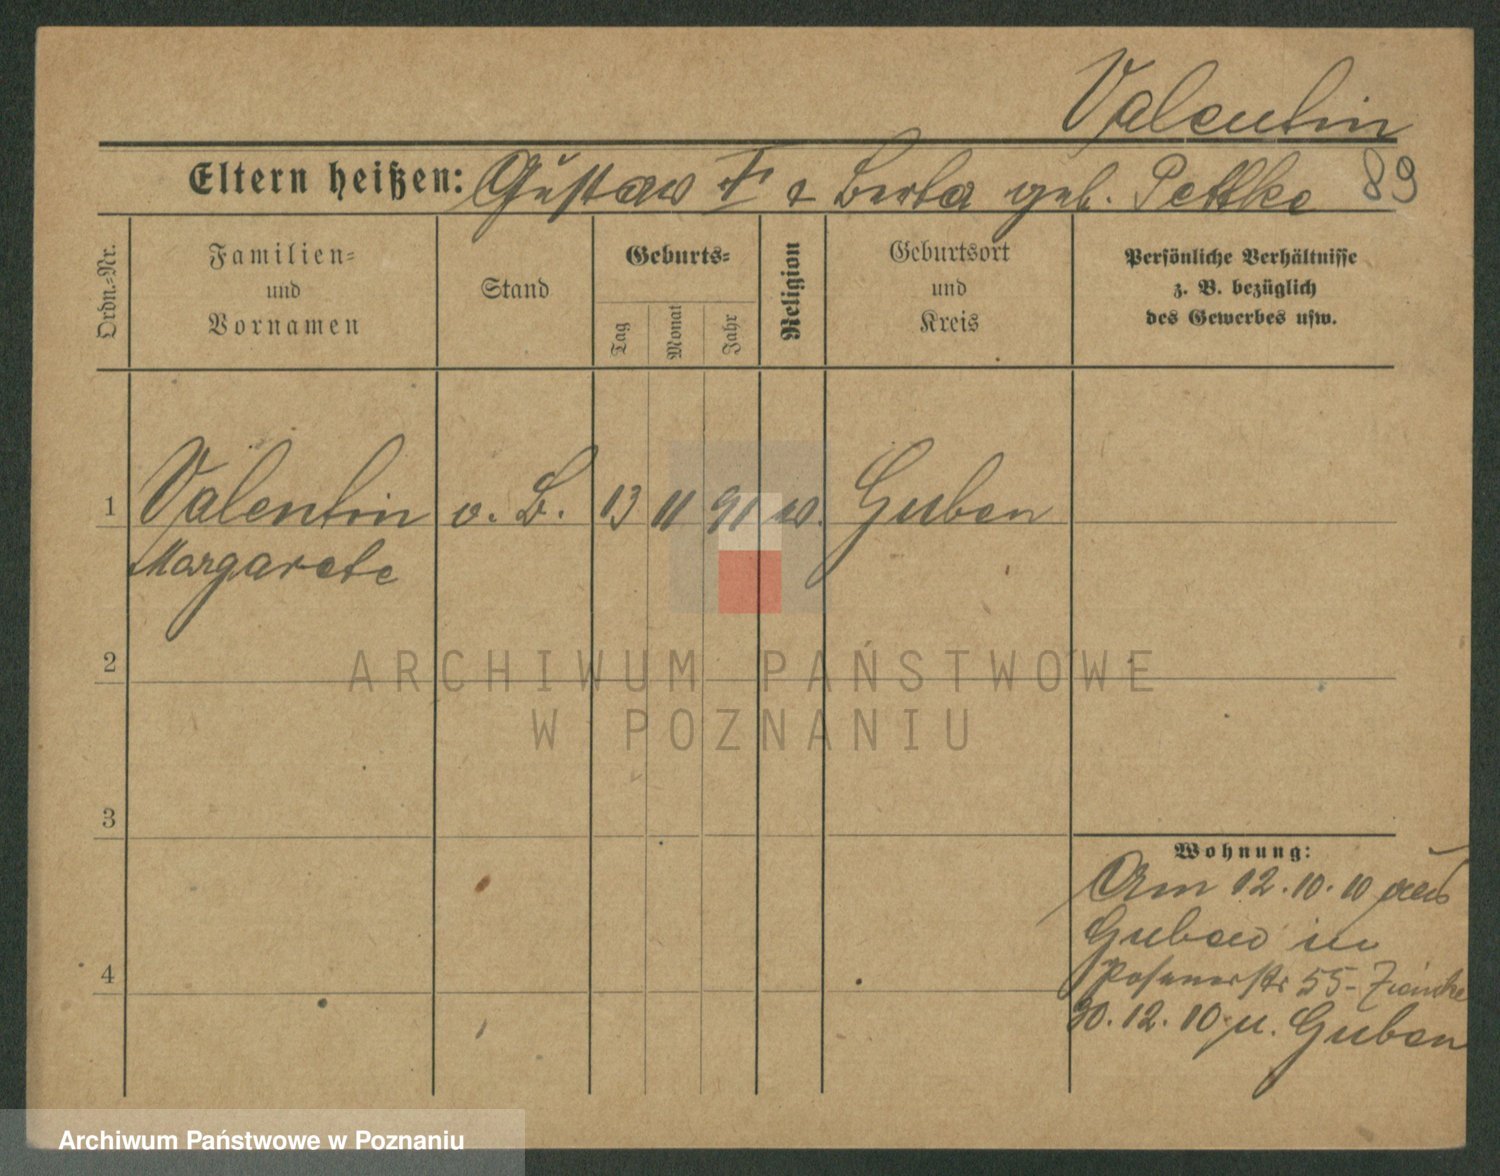 Valentin
Eltern heißen: Gustav † & Berta geb. Pettke
89
Ordn.-Nr.
Familien-
und
Vornamen
Stand
Geburts-
Tag
Monat
Jahr
Religion
Geburtsort
und
Kreis
Persönliche Verhältnisse
z. B. bezüglich
des Gewerbes usw.
1 Valentin o. B. 13 11 91 ev. Guben
Margarete
2
3
4
Wohnung:
Am 12.10.10 aus
Guben in
Posenerstr 55-
30.12.10 n. Guben
ARCHIWUM PAŃSTWOWE
W POZNANIU
Archiwum Państwowe w Poznaniu